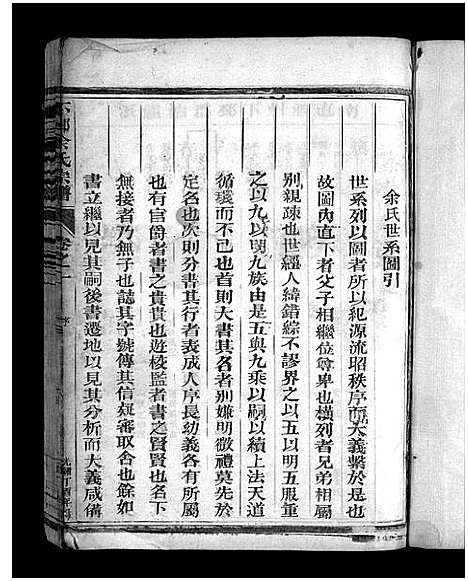 余氏世系圖引
世系列以圖者所以紀源流昭秩序而大義繫於是也
故圖內直下者父子相繼位尊卑也橫列者兄弟相屬
別親疎也世經人緯錯綜不謬界之以五以明五服重
之以九以明九族由是五與九乘以嗣以續上法天道
循環而不已也首則大書其名者別嫌明微禮莫先於
定名也次則分書其行者表成人序長幼義各有所屬
也有官爵者書之貴貴也遊校監者書之賢賢也名下
無接者乃無子也誌其字號傳其信矩審取舍也餘如
書立繼以見其嗣後書遷地以見其分析而大義咸備
余氏宗譜
卷之
序